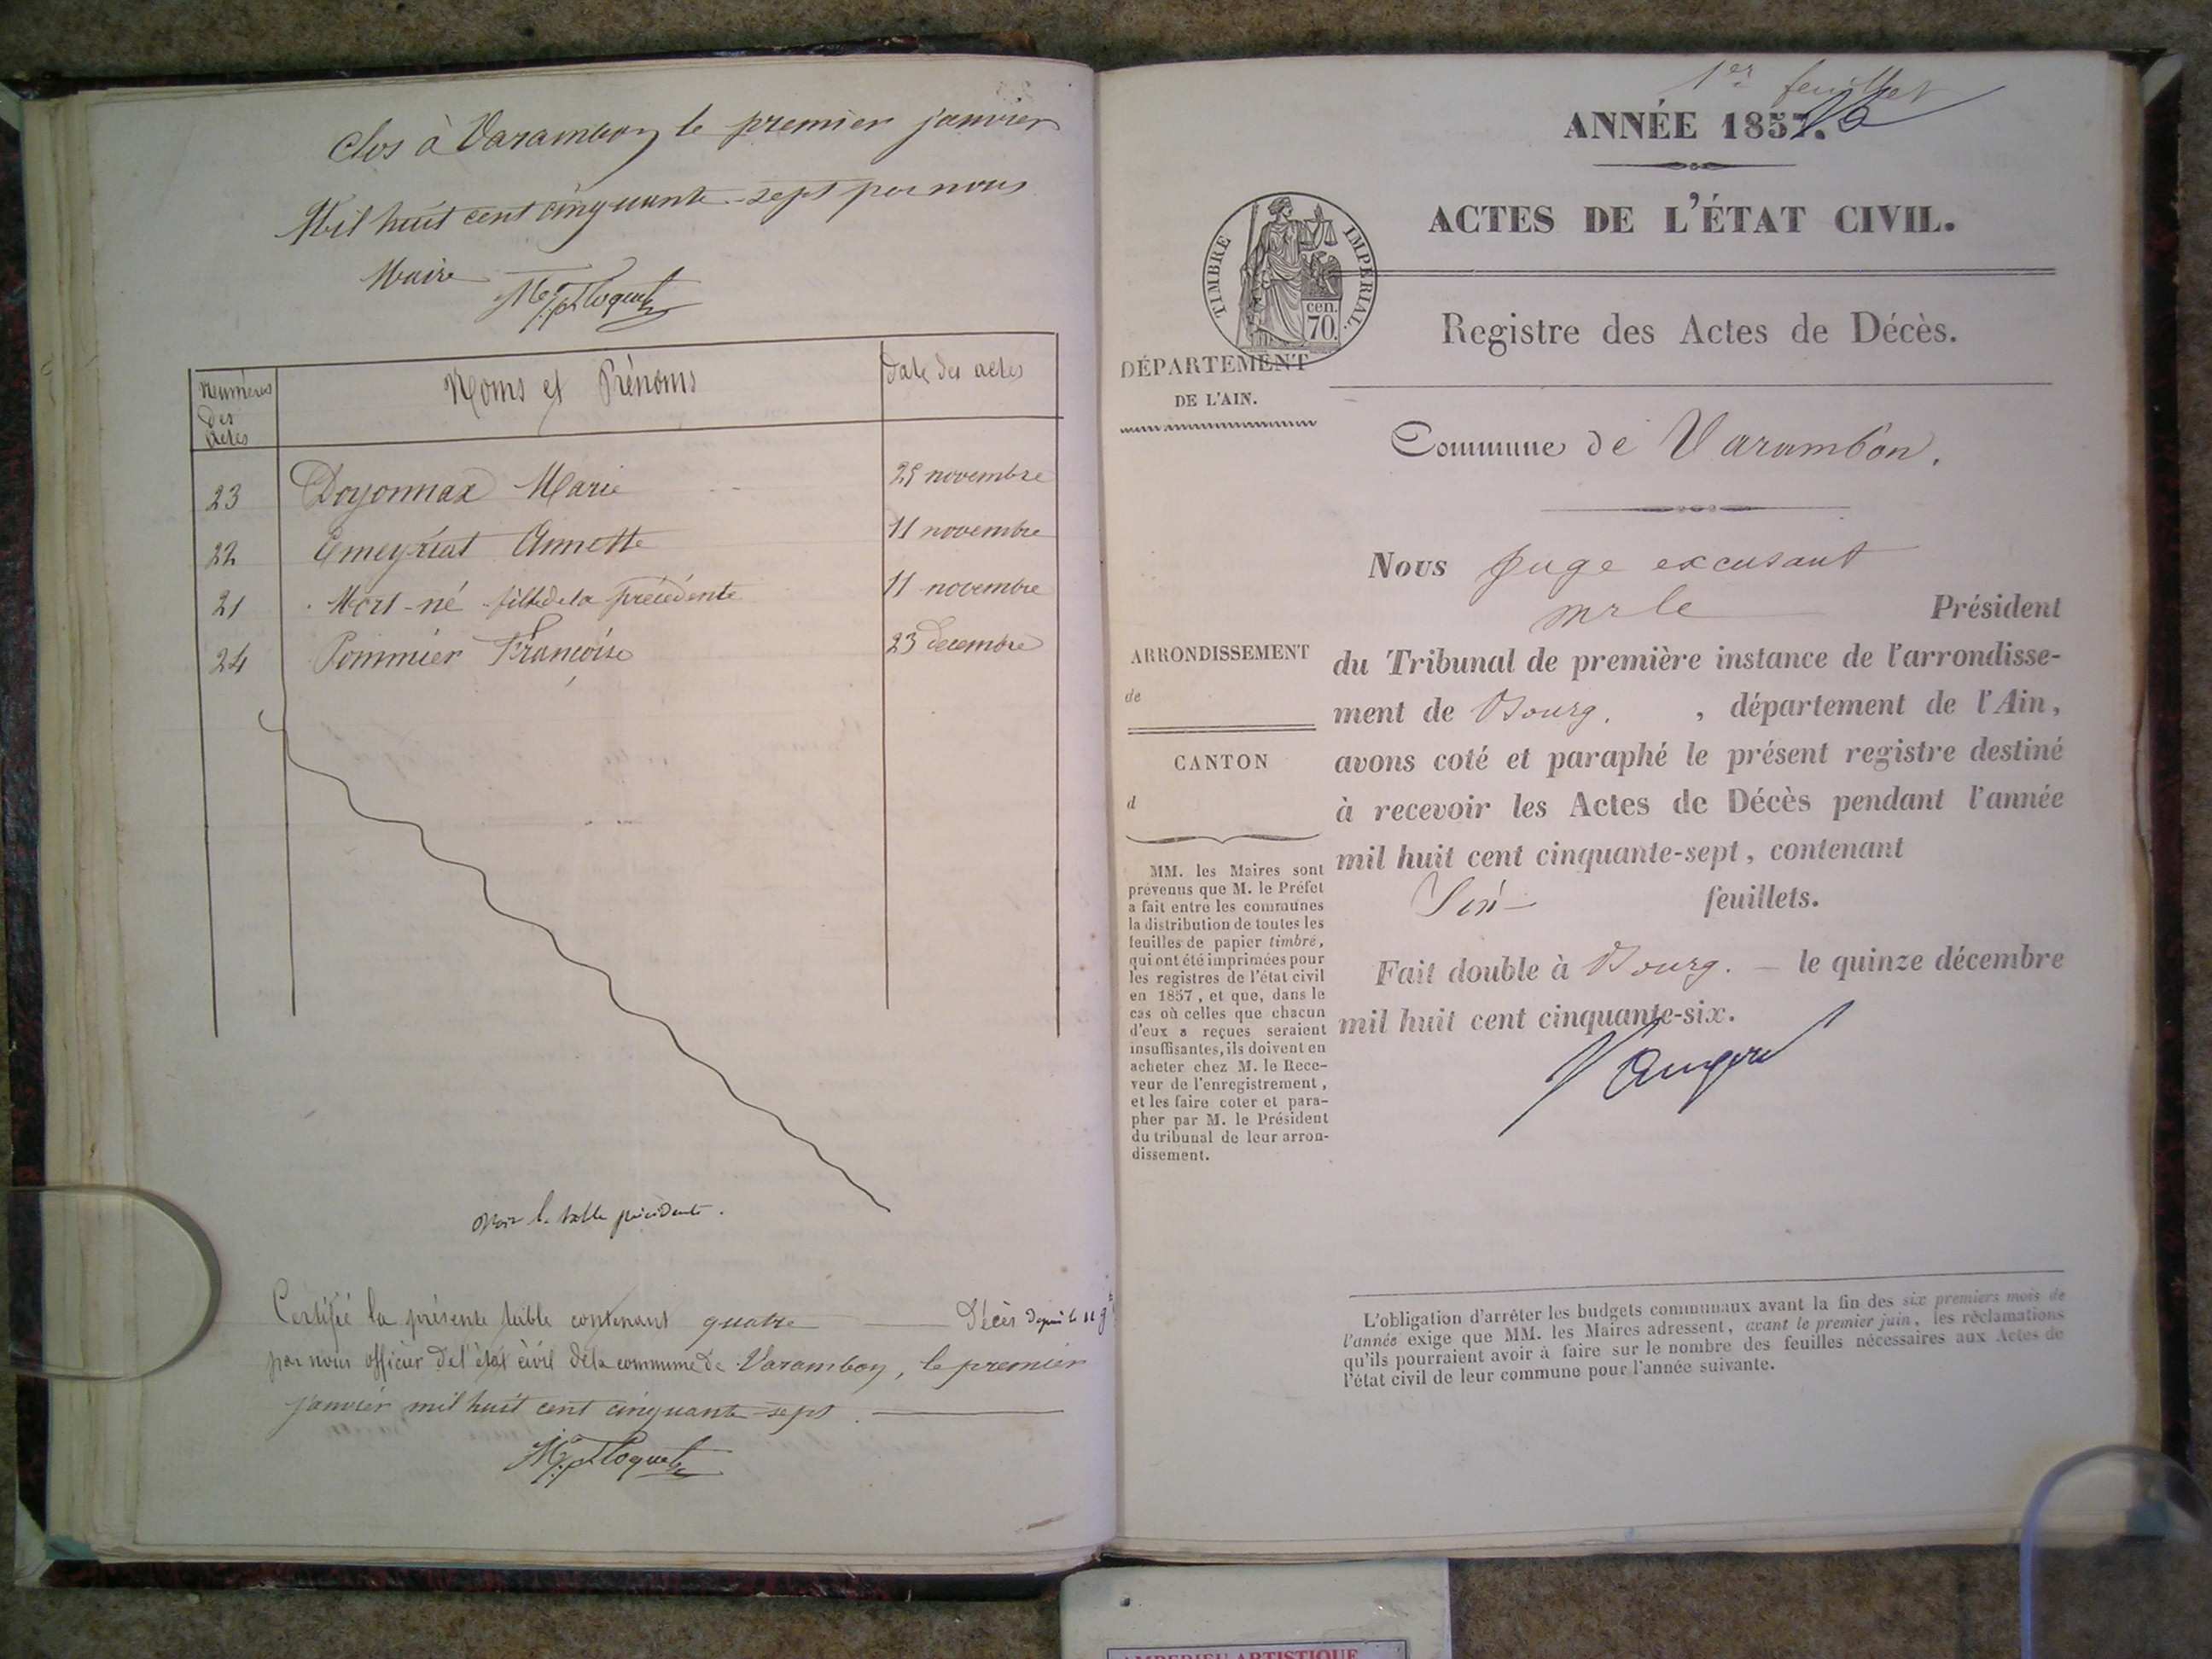 Clos à Varambon le premier janvier
Mil huit cent cinquante-sept par nous
Maire
Numéros des actes
Noms et Prénoms
Date des actes
23 Doyonnax Marie 25 novembre
22 Emeyriat Annette 11 novembre
21 Mort-né fille de la précédente 11 novembre
24 Pommier Françoise 23 decembre
Voir la table précédente.
Certifié la présente table contenant quatre décès depuis le 11 9bre
par nous officier de l'état civil de la commune de Varambon, le premier
janvier mil huit cent cinquante-sept.
1er feuillet
ANNÉE 1857.
ACTES DE L'ÉTAT CIVIL.
TIMBRE IMPERIAL.
cen.
70.
Registre des Actes de Décès.
DÉPARTEMENT
DE L'AIN.
Commune de Varambon.
Nous Juge excusant
mr le Président
ARRONDISSEMENT
de
du Tribunal de première instance de l'arrondisse-
ment de Bourg. , département de l'Ain,
CANTON
d
avons coté et paraphé le présent registre destiné
à recevoir les Actes de Décès pendant l'année
mil huit cent cinquante-sept, contenant
feuillets.
Fait double à Bourg. — le quinze décembre
mil huit cent cinquante-six.
MM. les Maires sont
prévenus que M. le Préfet
a fait entre les communes
la distribution de toutes les
feuilles de papier timbré,
qui ont été imprimées pour
les registres de l'état civil
en 1857, et que, dans le
cas où celles que chacun
d'eux a reçues seraient
insuffisantes, ils doivent en
acheter chez M. le Rece-
veur de l'enregistrement,
et les faire coter et para-
pher par M. le Président
du tribunal de leur arron-
dissement.
L'obligation d'arrêter les budgets communaux avant la fin des six premiers mois de
l'année exige que MM. les Maires adressent, avant le premier juin, les réclamations
qu'ils pourraient avoir à faire sur le nombre des feuilles nécessaires aux Actes de
l'état civil de leur commune pour l'année suivante.